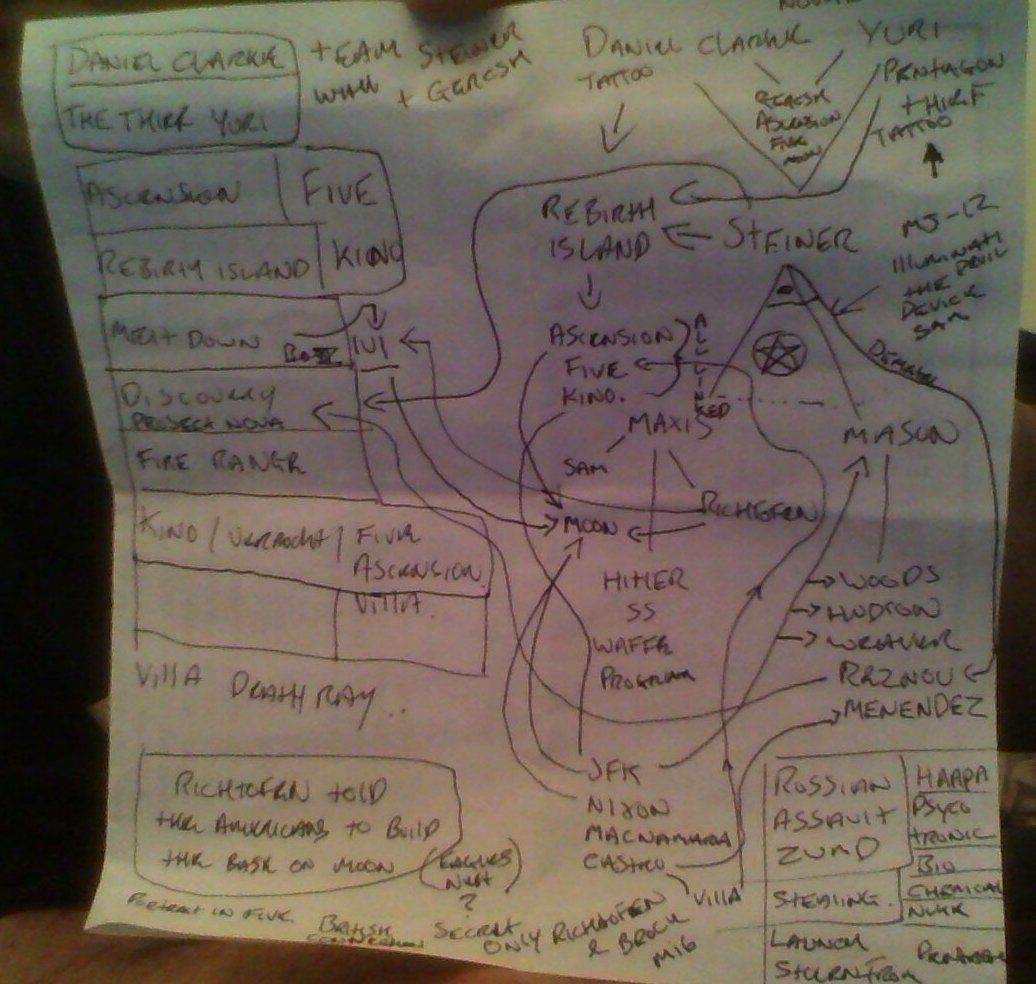 DANIEL CLARKE
THE THIEF YURI
+ TEAM STEINER
WALL + GERESH
DANIEL CLARKE
TATTOO
YURI
PENTAGON
THIEF
TATTOO
GERESH
ASCENSION
FIVE
MOON
ASCENSION
FIVE
REBIRTH ISLAND
KINO
MELT DOWN
DISCOVERY
PROJECT NOVA
FIRE RANGE
KINO / VERRUCKT / FIVE
ASCENSION
VILLA
VILLA DEATH RAY..
REBIRTH
ISLAND
STEINER
MJ-12
ILLUMINATI
THE DEVIL
DEVICE
SAM
ASCENSION
FIVE
KINO.
ALL LINKED
MAXIS
SAM
MOON
RICHTOFEN
MASON
HITLER
SS
WAFER
PROGRAM
WOODS
HUDSON
WEAVER
REZNOV
MENENDEZ
JFK
NIXON
MACNAMARA
CASTRO
VILLA
RICHTOFEN TOLD
THE AMERICANS TO BUILD
THE BASE ON MOON
(EAGLES NEST)
?
PORTRAIT IN FIVE
BRITISH
CONNECTION
SECRET
ONLY RICHTOFEN
& BROCK
MI6
ROSSIAN
ASSAULT
ZUMD
STEALING.
LAUNCH
HAARA
PSYCO
TRONIC
BIO
CHEMICAL
NUKE